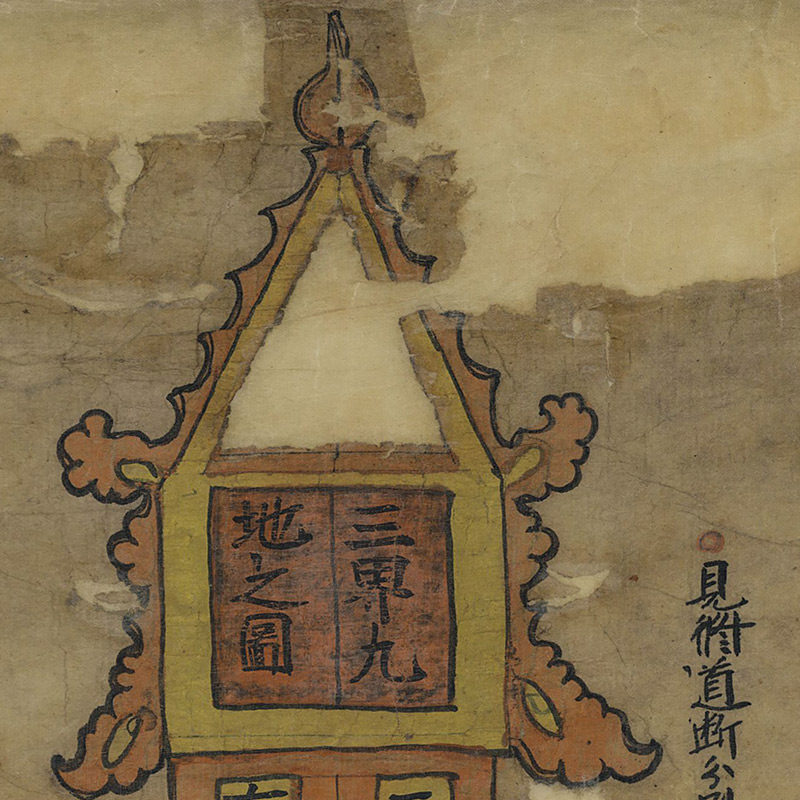 三界九
地之圖
見脩道断分